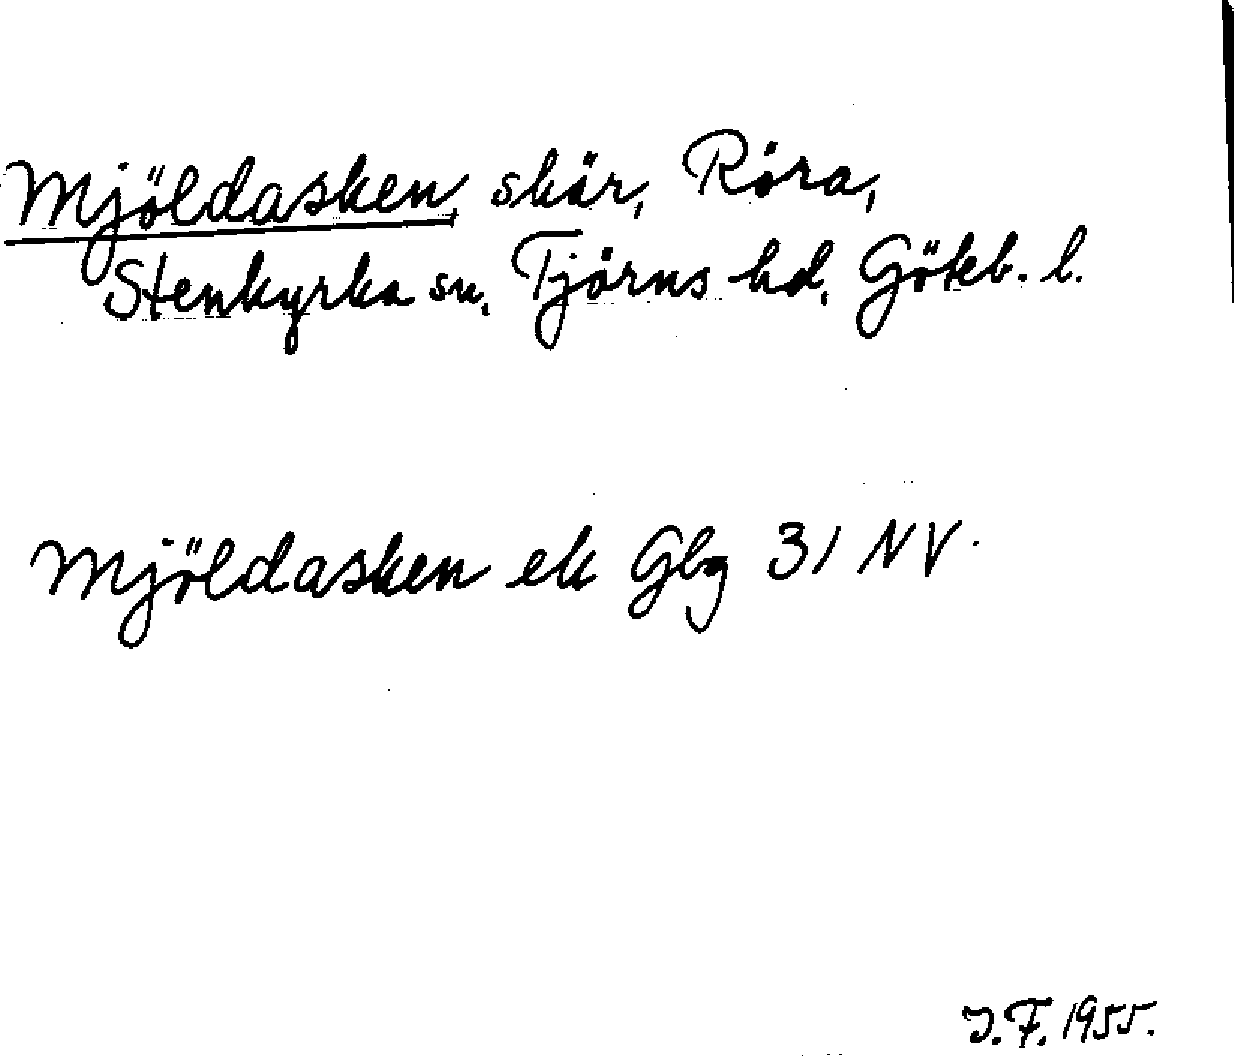 Mjöldasken, skär, Röra,
Stenkyrka sn, Tjörns hd, Göteb. l.
Mjöldasken ek Gbg 31 NV.
J.F. 1955.